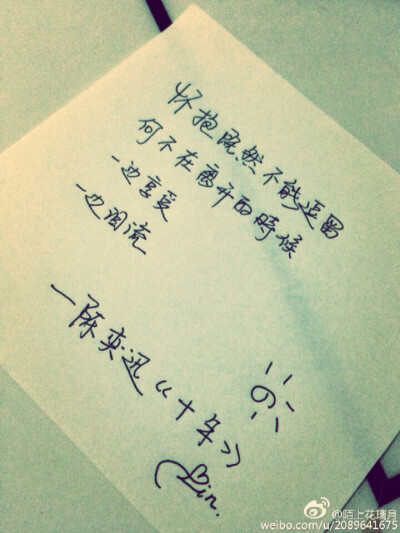 怀抱既然不能逗留
何不在离开的時候
一边享受
一边泪流
一陈奕迅《十年》
Lin.
@陌上花璃月
weibo.com/u/2089641675